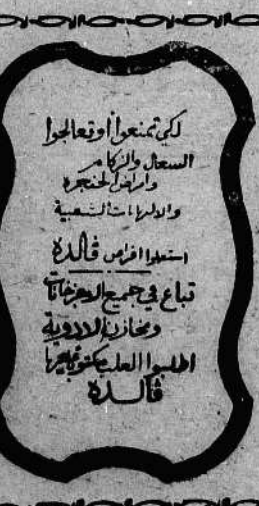 لكي تمنعوا أو تعالجوا
السعال والزكام
وامراض الحنجرة
والالتهابات الشعبية
استعلوا اقراص ڤالدة
تباع في جميع الاجزخانات
ومخازن الادوية
اطلبوا العلب مكتوب عليها
ڤالدة